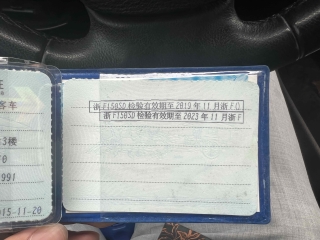 客车
3楼
0
991
015-11-20
浙F158SD检验有效期至2019年11月浙F(
浙F158SD检验有效期至2023年11月浙F